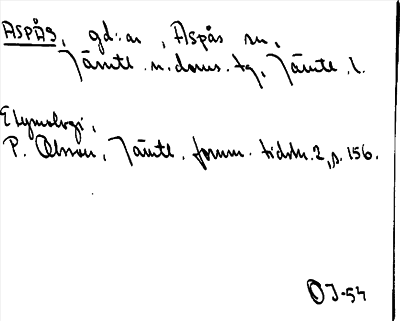 ASPÅS, gd:ar, Aspås sn,
Jämtl. n. doms. tg, Jämtl. l.
Etymologi,
P. Olsson, Jämtl. fornm. tidskr. 2, s. 156.
OJ-54